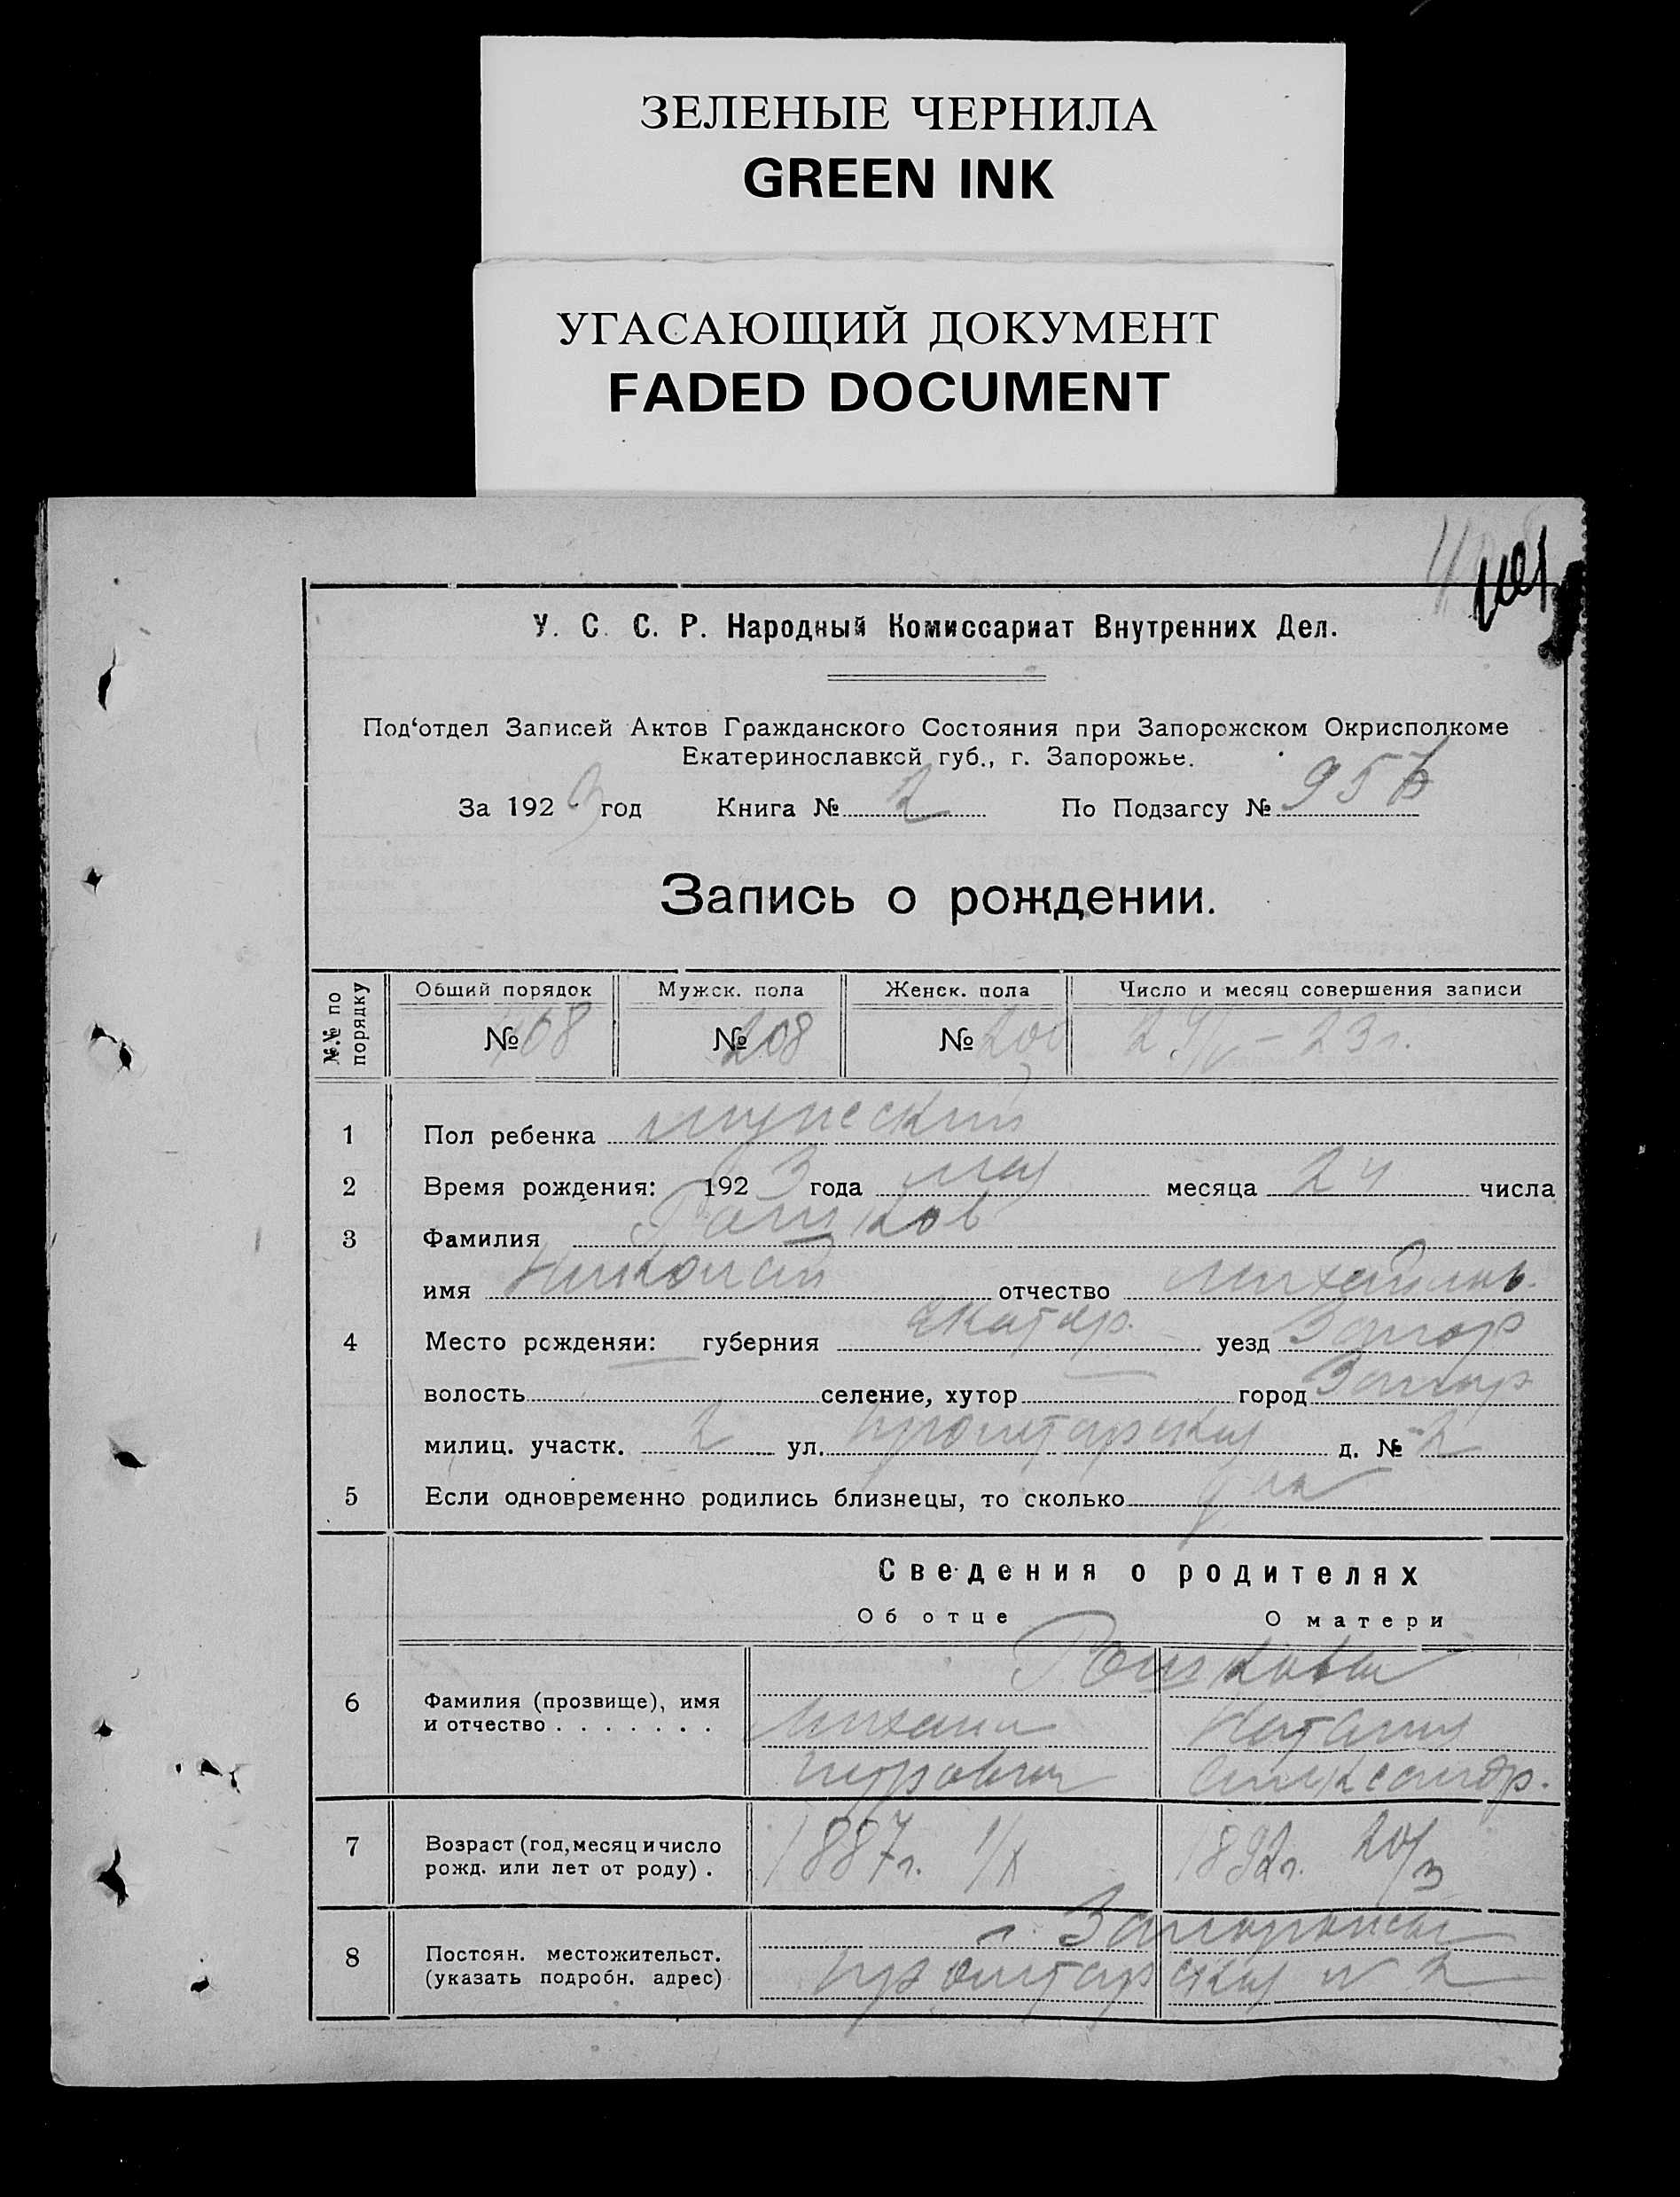 ЗЕЛЕНЫЕ ЧЕРНИЛА
GREEN INK
УГАСАЮЩИЙ ДОКУМЕНТ
FADED DOCUMENT
У. С. С. Р. Народный Комиссариат Внутренних Дел.
Под‘отдел Записей Актов Гражданского Состояния при Запорожском Окрисполкоме
Екатеринославкой губ., г. Запорожье.
За 1923 год Книга № 2 По Подзагсу № 956
Запись о рождении.
№№ по порядку Общий порядок Мужск. пола Женск. пола Число и месяц совершения записи
№ 408 № 208 № 200 29/V – 23 г.
1 Пол ребенка мужеский
2 Время рождения: 1923 года мая месяца 24 числа
3 Фамилия
имя Николай отчество Михайлов.
4 Место рожденяи: губерния Екатер. уезд Запор
волость селение, хутор город Запор
милиц. участк. 2 ул. пролетарская д. № 2
5 Если одновременно родились близнецы, то сколько
Сведения о родителях
Об отце О матери
6 Фамилия (прозвище), имя
и отчество . . . . . . . Михаил Наталия
Александр.
7 Возраст (год, месяц и число
рожд. или лет от роду) . 1887 г. 1/X 1892 г. 20/3
8 Постоян. местожительст.
(указать подробн. адрес) г. Запорожье
пролетарская № 2